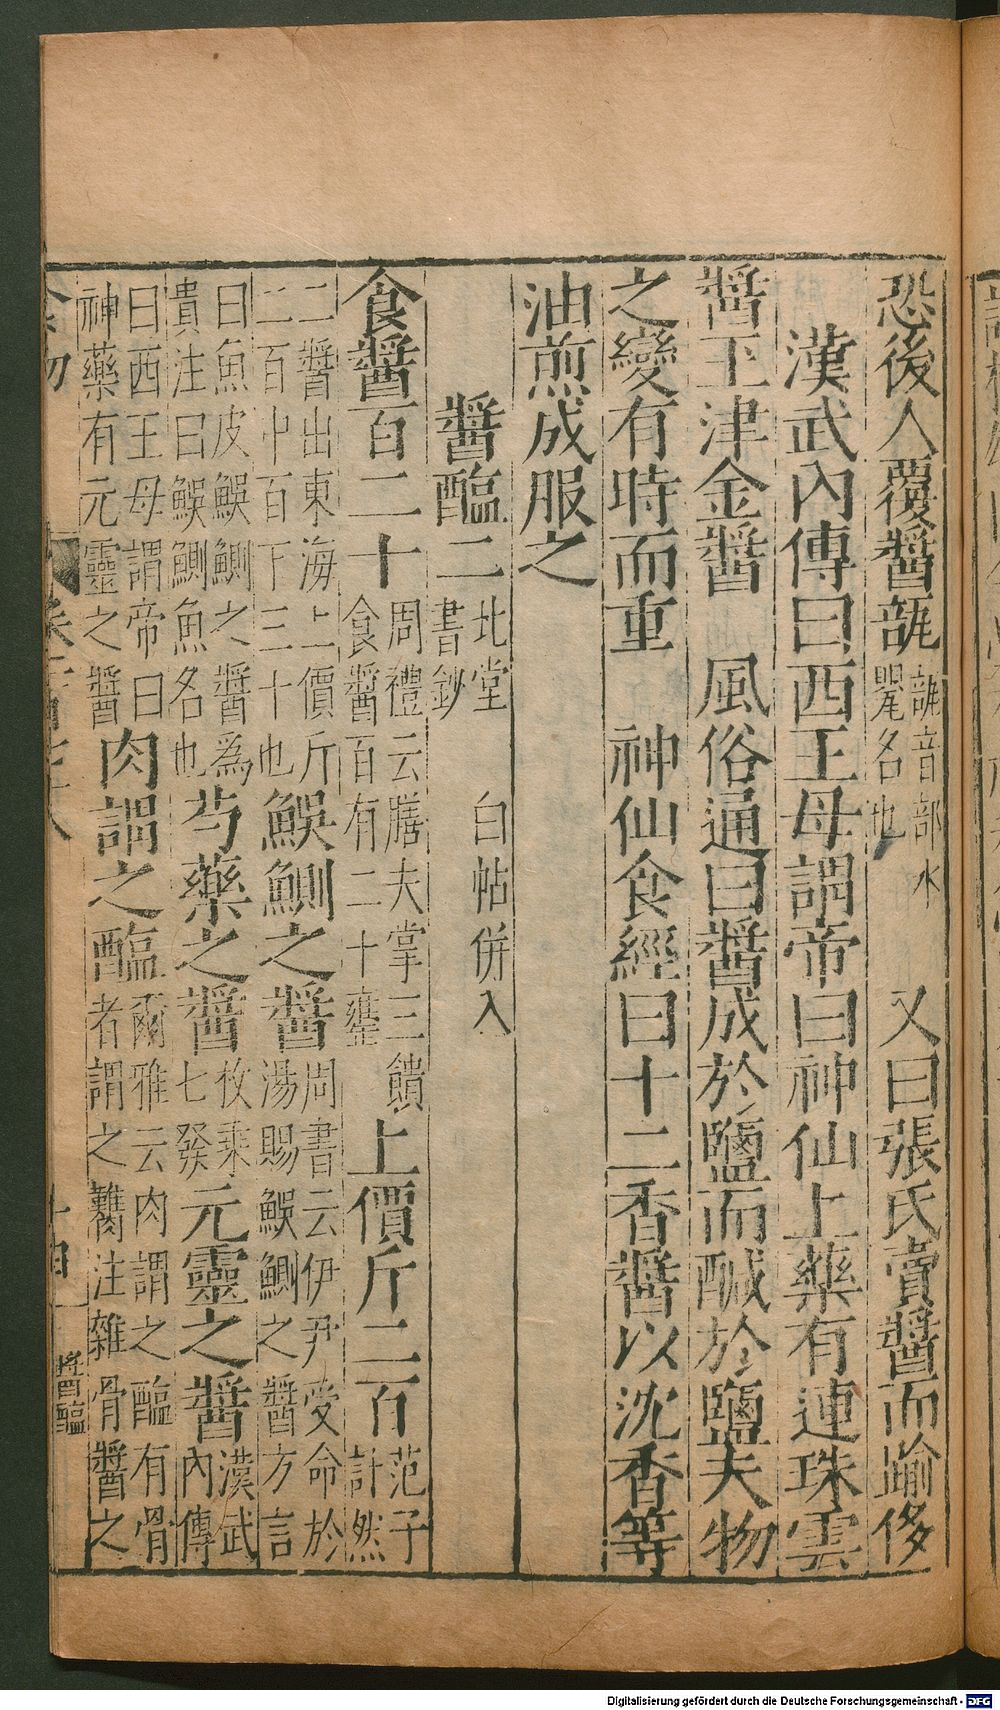 恐後人覆醬瓿瓿音部水甖名也 又曰張氏賣醬而踰侈
漢武內傳曰西王母謂帝曰神仙上藥有連珠雲
醬玉津金醬 風俗通曰醬成於鹽而鹹於鹽夫物
之變有時而重 神仙食經曰十二香醬以沈香等
油煎成服之
醬醢二北堂書鈔 白帖併入
食醬百二十周禮云膳夫掌三饋食醬百有二十罋 上價斤二百范子計然
二醬出東海上價斤二百中百下三十也鯸鰂之醬周書云伊尹受命於湯賜鯸鰂之醬方言
曰魚皮鯸鰂之醬為貴注曰鯸鰂魚名也芍藥之醬枚乘七發元靈之醬漢武內傳
曰西王母謂帝曰神藥有元靈之醬肉謂之醢爾雅云肉謂之醢有骨者謂之臡注雜骨醬之
食物
卷
醬醢
Digitalisierung gefördert durch die Deutsche Forschungsgemeinschaft - DFG